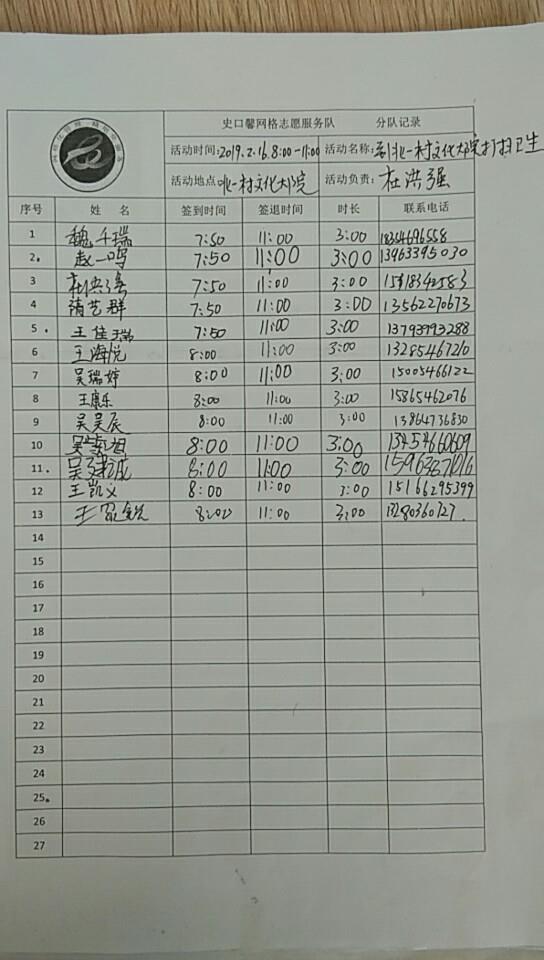 史口馨网格志愿服务队 分队记录
活动时间:2019.2.16.8:00-11:00 活动名称: 北一村文化大院打扫卫生
活动地点 北一村文化大院 活动负责: 杜洪强
序号 姓 名 签到时间 签退时间 时长 联系电话
1 魏千瑞 7:50 11:00 3:00 18354696558
2 赵一鸣 7:50 11:00 3:00 13963395030
3 杜洪强 7:50 11:00 3:00 15818342583
4 隋艺群 7:50 11:00 3:00 13562270673
5 王佳瑞 7:50 11:00 3:00 13793993288
6 王海悦 8:00 11:00 3:00 13285467210
7 吴瑞婷 8:00 11:00 3:00 15005466122
8 王康乐 8:00 11:00 3:00 15865462076
9 吴昊辰 8:00 11:00 3:00 13864736830
10 8:00 11:00 3:00 13454660609
11 8:00 11:00 3:00
12 王凯义 8:00 11:00 3:00 15166295399
13 8:00 11:00 3:00 13280360127
14
15
16
17
18
19
20
21
22
23
24
25
26
27